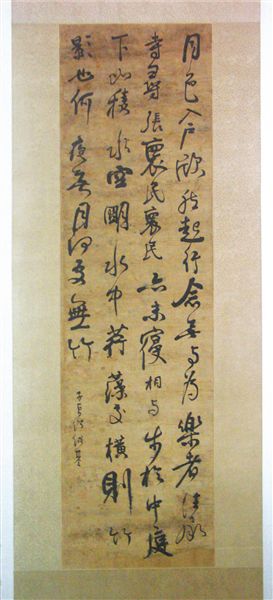 月色入戶欣然起行念無与為樂者
寺尋張褱民褱民亦未寢相与步於中庭
下如積水空明水中荇藻交橫則竹
影也何夜無月何處無竹
子貞何紹基